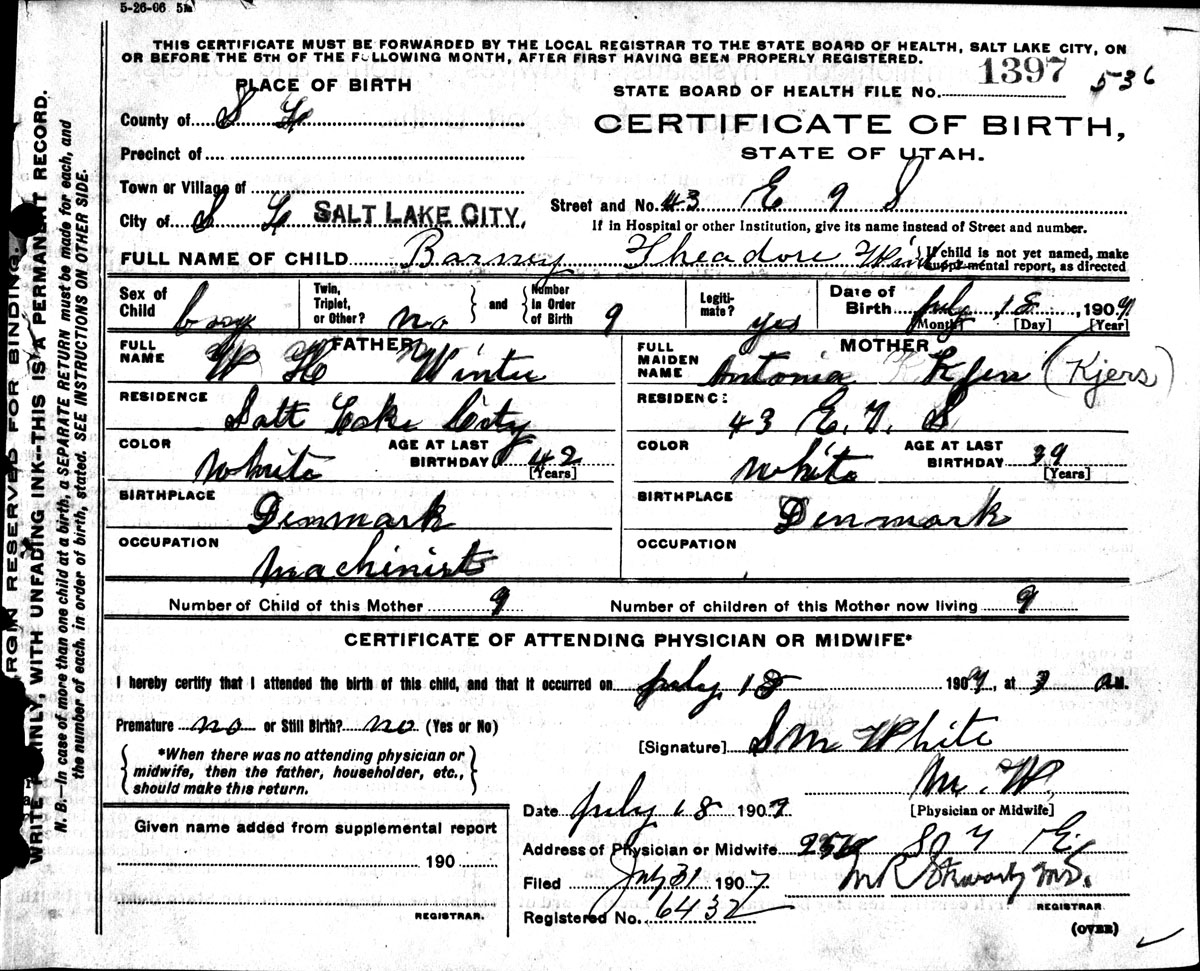 5-26-06 5M
THIS CERTIFICATE MUST BE FORWARDED BY THE LOCAL REGISTRAR TO THE STATE BOARD OF HEALTH, SALT LAKE CITY, ON
OR BEFORE THE 5TH OF THE FOLLOWING MONTH, AFTER FIRST HAVING BEEN PROPERLY REGISTERED.
PLACE OF BIRTH
STATE BOARD OF HEALTH FILE NO. 1397 536
CERTIFICATE OF BIRTH,
STATE OF UTAH.
County of S L
Precinct of
Town or Village of
City of S L SALT LAKE CITY,
Street and No. 43 E 9 S
If in Hospital or other Institution, give its name instead of Street and number.
FULL NAME OF CHILD Barney Theadore
If child is not yet named, make supplemental report, as directed
Sex of Child boy
Twin, Triplet, or Other? no
and
Number in Order of Birth 9
Legitimate? yes
Date of Birth July 18, 1907
[Month] [Day] [Year]
FATHER
FULL NAME W H Winter
RESIDENCE Salt Lake City
COLOR White
AGE AT LAST BIRTHDAY 42
[Years]
BIRTHPLACE Denmark
OCCUPATION Machinist
MOTHER
FULL MAIDEN NAME Antonia (Kjers)
RESIDENC: 43 E. 9. S
COLOR White
AGE AT LAST BIRTHDAY 39
[Years]
BIRTHPLACE Denmark
OCCUPATION
Number of Child of this Mother 9 Number of children of this Mother now living 9
CERTIFICATE OF ATTENDING PHYSICIAN OR MIDWIFE*
I hereby certify that I attended the birth of this child, and that it occurred on July 18 1907, at 3 A.M.
Premature no or Still Birth? no (Yes or No)
*When there was no attending physician or
midwife, then the father, householder, etc.,
should make this return.
[Signature] S M White
M. W.
[Physician or Midwife]
Date July 18 1907
Given name added from supplemental report
190
REGISTRAR.
Address of Physician or Midwife
Filed July 31 1907
REGISTRAR
Registered No. 6432
(OVER)
MARGIN RESERVED FOR BINDING.
WRITE PLAINLY, WITH UNFADING INK—THIS IS A PERMANENT RECORD.
N. B.—In case of more than one child at a birth, a SEPARATE RETURN must be made for each, and
the number of each, in order of birth, stated. SEE INSTRUCTIONS ON OTHER SIDE.